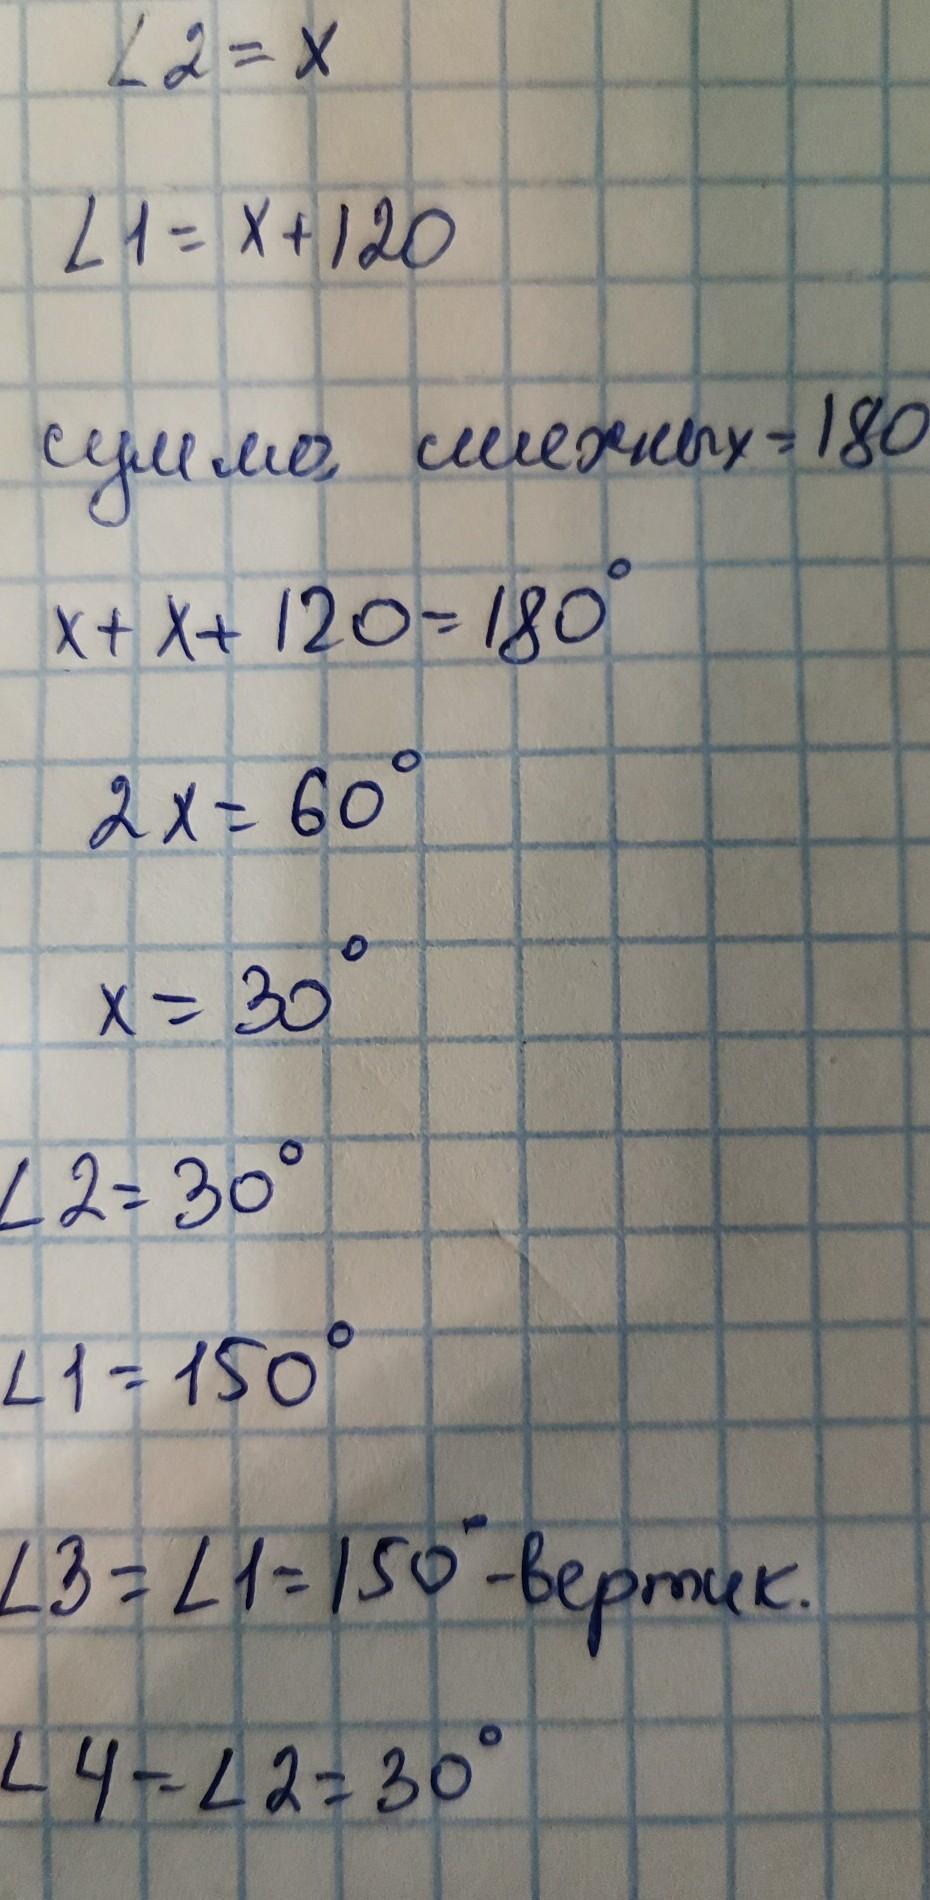 ∠2 = x
∠1 = x + 120
сумма смежных = 180
x + x + 120 = 180°
2x = 60°
x = 30°
∠2 = 30°
∠1 = 150°
∠3 = ∠1 = 150° - вертик.
∠4 = ∠2 = 30°